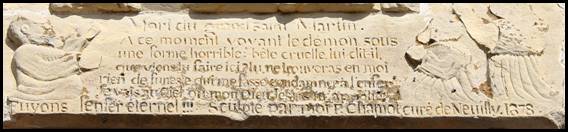 Mort du grand saint Martin.
A ce moment voyant le démon sous
une forme horrible: bête cruelle, lui dit-il,
que viens-tu faire ici? tu ne trouveras en moi
rien de funeste qui me fasse condamner à l'enfer
Je vais au Ciel où mon Dieu
Fuyons l'enfer éternel!!! Sculpté par moi P. Chamot curé de Neuilly, 1878.